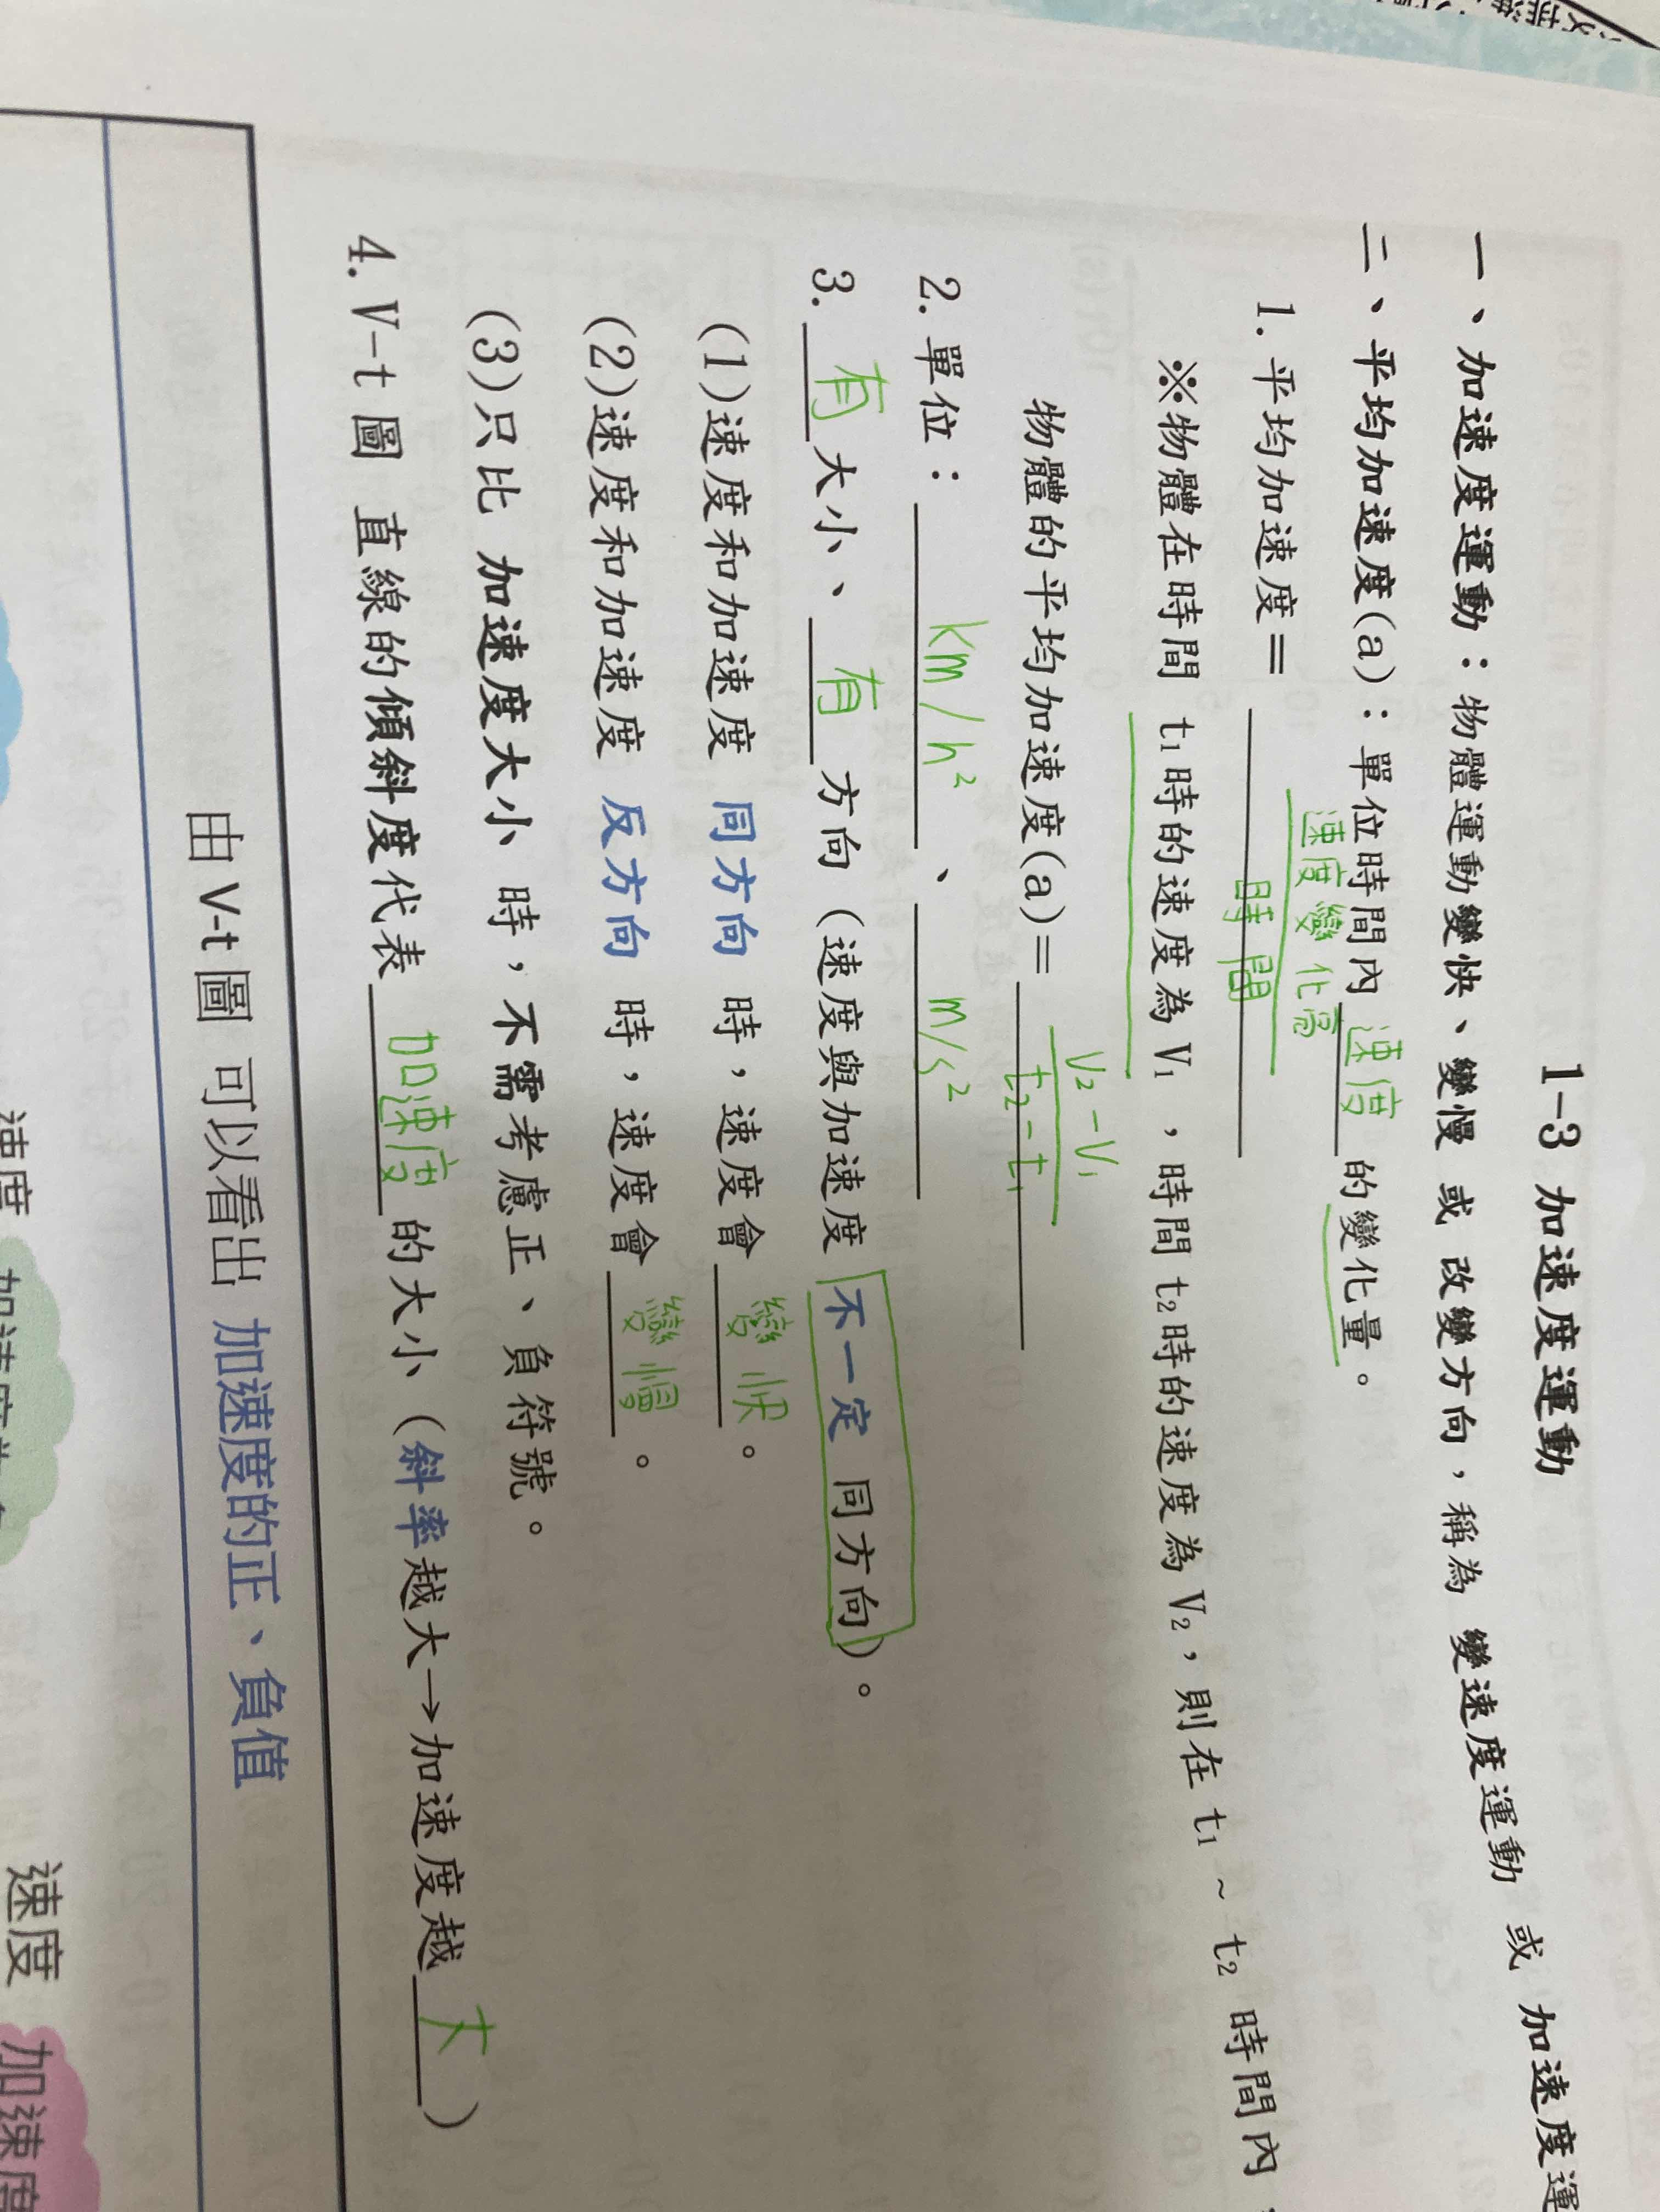 1-3 加速度運動
一、加速度運動：物體運動變快、變慢 或 改變方向，稱為 變速度運動 或 加速度運
二、平均加速度(a)：單位時間內 速度 的變化量。
1. 平均加速度＝ 速度變化量
時間
※物體在時間 t₁時的速度為 V₁ ，時間 t₂時的速度為 V₂，則在 t₁ ~ t₂ 時間內，
物體的平均加速度(a)＝ V₂-V₁
t₂-t₁
2. 單位： km/h² 、 m/s²
3. 有 大小、 有 方向（速度與加速度 不一定 同方向）。
(1)速度和加速度 同方向 時，速度會 變快 。
(2)速度和加速度 反方向 時，速度會 變慢 。
(3)只比 加速度大小 時，不需考慮正、負符號。
4. V-t 圖 直線的傾斜度代表 加速度 的大小（斜率越大→加速度越 大 ）
由 V-t 圖 可以看出 加速度的正、負值
速度 加速度 速度 加速度